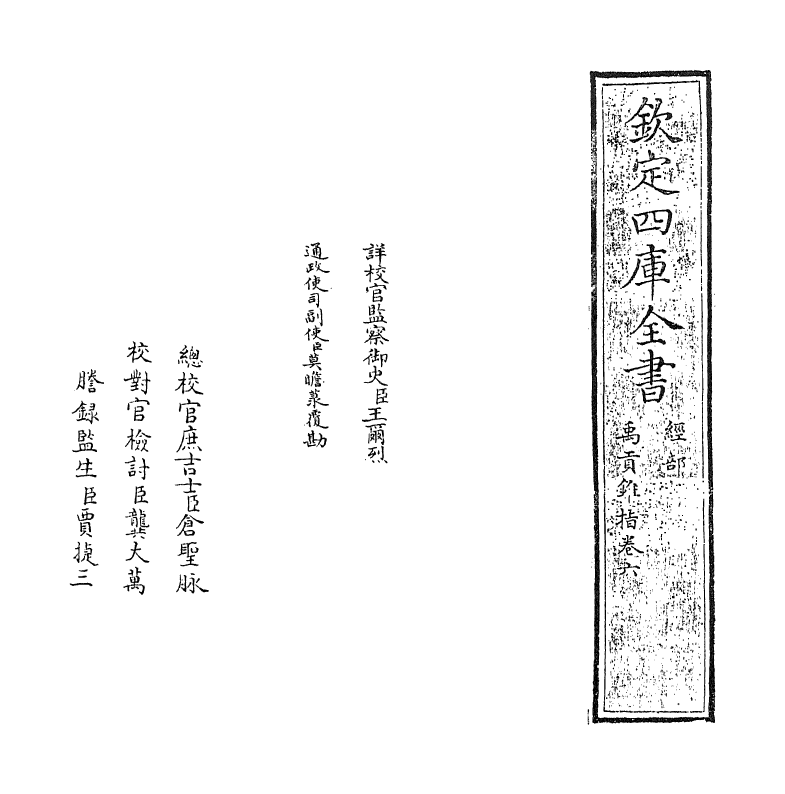 欽定四庫全書
經部
禹貢錐指卷六
詳校官監察御史臣王爾烈
通政使司副使臣莫瞻菉覆勘
總校官庶吉士臣倉聖脉
校對官檢討臣龔大萬
謄録監生臣賈㨗三